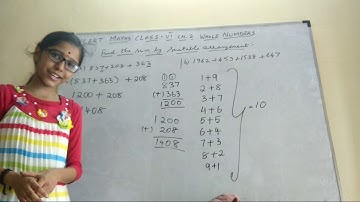 NCERT MATHS CLASS-VI CH.2 WHOLE NUMBERS
Find the sum by suitable arrangement:
837+208+363
(837+363)+208
1200+208
1408
837
(+)363
1200
1200
(+) 208
1408
(b) 1962+453+1538+647
1+9
2+8
3+7
4+6
5+5
6+4
7+3
8+2
9+1
=10